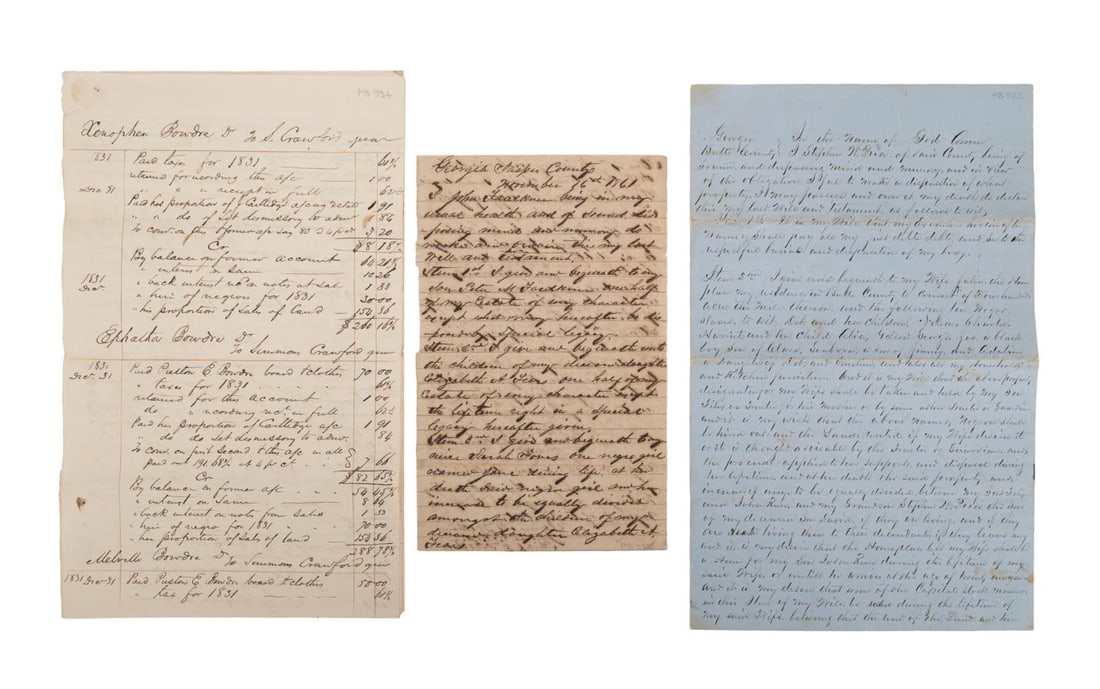 PB 934
Xenophen Bowdre Dr To S Crawford guar
1831 Paid taxes for 1831 61¾
returned for recording this a/c 1 00
Dec 31 " " " receipt in full 62½
Paid his proportion of J Cartledge a/c 1 91
" do of set dismessory to admr 84
To com. on this & former a/c say 80 3 20
$8 18¾
Cr
By balance on former account 64 21¾
" interest on Same 10 26
1831 Dec " back interest on notes at sale 1 33
" hire of negroes for 1831 30 00
" his proportion of Sales of land 153 36
Ephatha Bowdre Dr
To Simmons Crawford guar
1831
Dec. 31 Paid Paston E Bowdre board & cloths 70 00
" taxes for 1831 61¾
returned for this account 1 00
do " recording in full 62½
Paid her proportion of Cartledge a/c 1 91
" do set dismessory to admr. 84
To com. on first second & this a/c in all
paid out 191.68¾ at 4 pr ct. 7 66
$82 65¾
Cr
By balance in former a/c 54 45¾
" interest on Same 8 64
" back interest on notes from Sale 1 33
" hire of negro for 1831 70 00
" her proportion of Sales of land 153 36
288 78¾
Melville Bowdre Dr To Simmons Crawford guar
1831 Dec 31 Paid Paston E Bowdre board & cloths 50 00
" tax for 1831 61¾
Georgia Jasper County
November 16th 1861
I John Faulkner being in my
usual health and of Sound dis
posing mind and memory do
make and this my last
Will and testament.
Item 1st I give and bequeath to my
Son Peter M Faulkner one half
of my Estate of every character
except what may hereafter be dis
posed by Special legacy
Item 2nd I give and bequeath unto
the children of my deceased daughter
Elizabeth A Fears one half of my
Estate of every character except
the lifetime right in a Special
legacy hereafter given.
Item 3rd I give and bequeath to my
niece Sarah Jones one negro girl
named Jane during life, at her
death Said negro girl and her
increase to be equally divided
amongst the children of my
deceased daughter Elizabeth A
Fears
PB 922
Georgia In the Name of God Amen
Butts County I Stephen W Price, of Said County being of
Sound and disposing mind and memory, and in view
of the obligation I feel to make a disposition of what
property I may possess and own at my death do declare
this my last Will and Testament, as follows to wit,
Item 1st It is my Will that my Executors
Named, Should pay all my just debts, and to the
respectful burial and disposition of my body.
Item 2nd I give and bequeath to my Wife
my in Butts County to consist of
and the following ten Negro
Slaves, to wit, and her Children,
Harriet and her Child Alice, George, a black
boy Son of
a daughter of
and Kitchen furniture. And it is my Will that the above property
designated for my Wife Should be taken and held by my Son
as Trustee for his Mother or by some other Trustee or Guardian
and it is my wish that the above named Negroes Should
be hired out and the Lands rented if my Wife desires it
or it is thought advisable by the Trustee or Guardian, and
the proceeds applied to her Support and disposal during
her lifetime, and at her death the said property and
increase if any to be equally divided between my Son
and John and my Grandson Stephen W Price the Son
of my deceased Son David, if they are living and if they
are dead leaving then to their decendants if they leave any
and it is my desire that the Homeplace left my Wife Shall be
a Home for my Son John during the lifetime of my
said Wife or until he arrives at the age of twenty one
and it is my desire that none of the Capital Stock named
in this Item of my Will be sold during the lifetime of
my said Wife, believing that the rent of the Land and hire